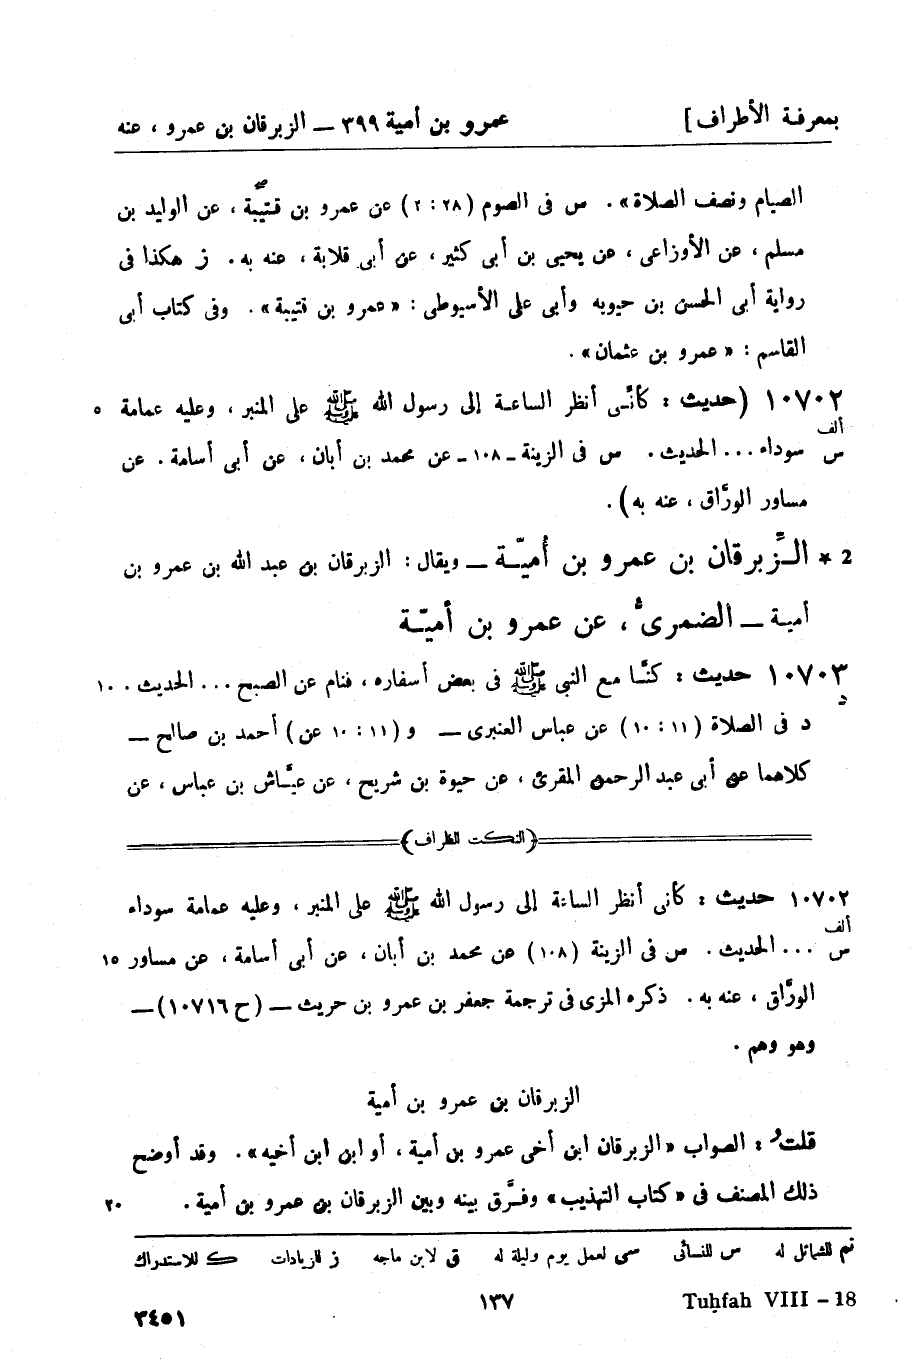 بمعرفة الأطراف] عمرو بن أمية ٣٩٩ — الزبرقان بن عمرو ، عنه
الصيام ونصف الصلاة». س فى الصوم (٢٨ : ٢) عن عمرو بن قتيبة ، عن الوليد بن
مسلم ، عن الأوزاعى ، عن يحيى بن أبى كثير ، عن أبى قلابة ، عنه به. ز هكذا فى
رواية أبى الحسن بن حيويه وأبى على الأسيوطى : «عمرو بن قتيبة». وفى كتاب أبى
القاسم : «عمرو بن عثمان».
١٠٧٠٢ (حديث : كأنّى أنظر الساعة إلى رسول الله ﷺ على المنبر ، وعليه عمامة ٥
ألف
س سوداء... الحديث. س فى الزينة ـ ١٠٨ ـ عن محمد بن أبان ، عن أبى أسامة. عن
مساور الورَّاق ، عنه به).
2 * الـزِّبرقان بن عمرو بن أُميّـة — ويقال : الزبرقان بن عبد الله بن عمرو بن
أمية — الضمرىُّ ، عن عمرو بن أميّـة
١٠٧٠٣ حديث : كنَّا مع النبى ﷺ فى بعض أسفاره ، فنام عن الصبح... الحديث. ١٠
د
د فى الصلاة (١١ : ١٠) عن عباس العنبرى — و (١١ : ١٠ عن) أحمد بن صالح —
كلاهما عن أبى عبد الرحمن المقرئ ، عن حيوة بن شريح ، عن عيَّاش بن عباس ، عن
(النكت الظراف)
١٠٧٠٢ حديث : كأنى أنظر الساعة إلى رسول الله ﷺ على المنبر ، وعليه عمامة سوداء
ألف
س ... الحديث. س فى الزينة (١٠٨) عن محمد بن أبان ، عن أبى أسامة ، عن مساور ١٥
الورَّاق ، عنه به. ذكره المزى فى ترجمة جعفر بن عمرو بن حريث — (ح ١٠٧١٦) —
وهو وهم.
الزبرقان بن عمرو بن أمية
قلتُ : الصواب «الزبرقان ابن أخى عمرو بن أمية ، أو ابن ابن أخيه». وقد أوضح
ذلك المصنف فى «كتاب التهذيب» وفرَّق بينه وبين الزبرقان بن عمرو بن أمية. ٢٠
تم للشمائل له س للنسائى سى لعمل يوم وليلة له ق لابن ماجه ز للزيادات ك للاستدراك
Tuḥfah VIII – 18 ١٣٧ ٣٤٥١